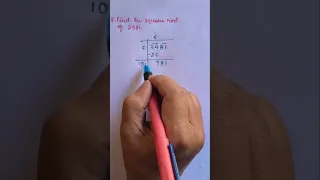 8. Find the square root
of 2981
5
5 2981
-25
10 481